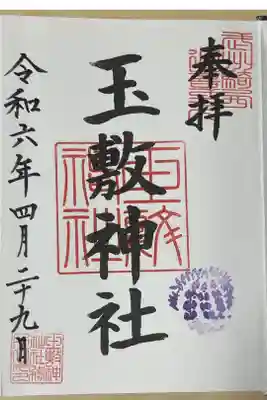 奉拝
玉敷神社
令和六年四月二十九日
玉敷神社